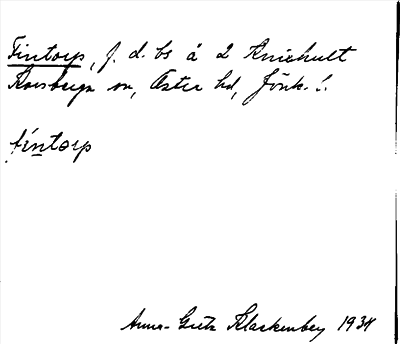 Fintorp, f. d. bs å 2 Knixhult
Korsberga sn, Öster hd, Jönk. l.
fìntorp
Anna-Greta Klackenberg 1934